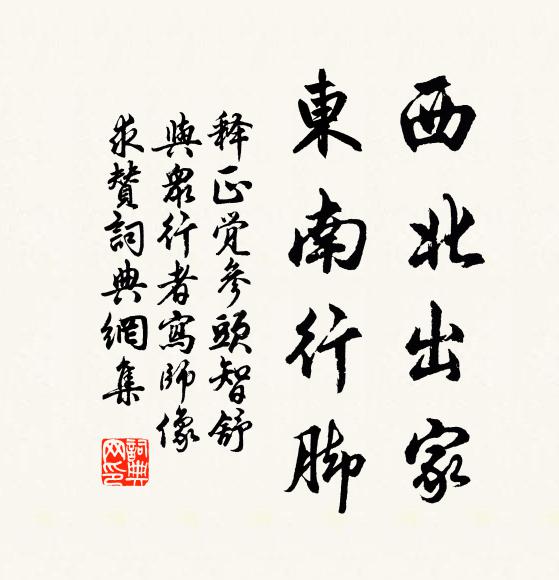 西北出家
東南行脚
释正觉參頭智舒
與眾行者寫師像
求贊詞典網集
詞典
网印